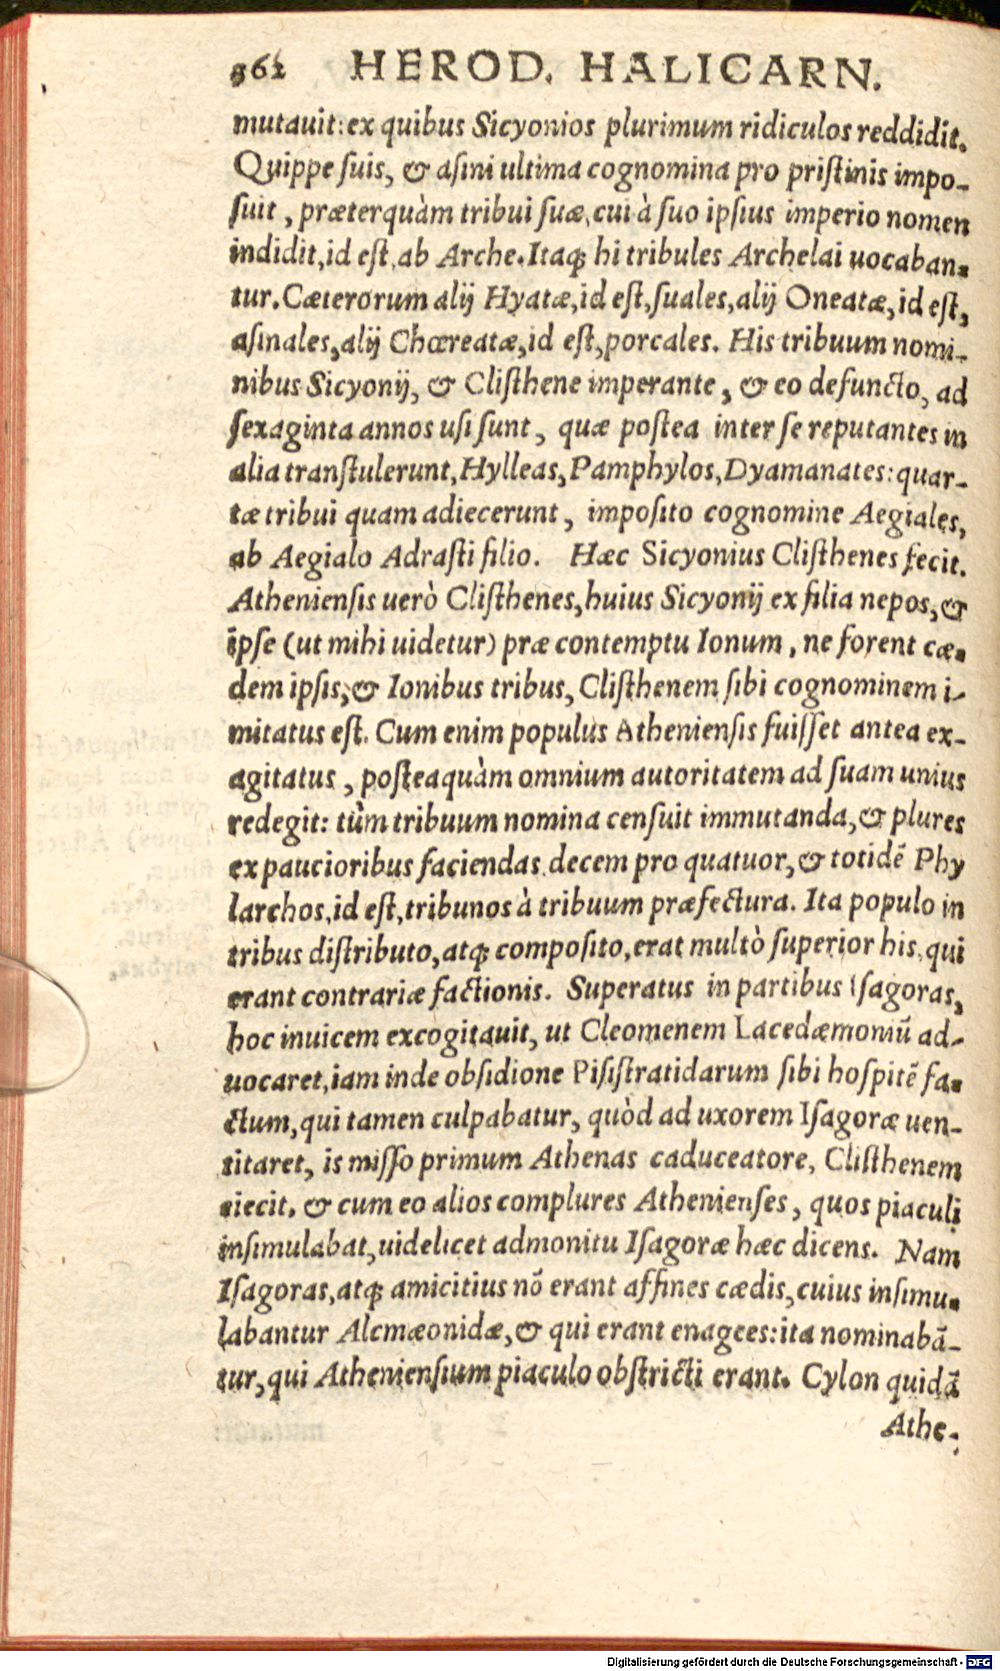 362 HEROD. HALICARN.
mutauit: ex quibus Sicyonios plurimum ridiculos reddidit.
Quippe suis, & asini ultima cognomina pro pristinis impo-
suit, præterquàm tribui suæ, cui à suo ipsius imperio nomen
indidit, id est, ab Arche. Itaq; hi tribules Archelai uocaban-
tur. Cæterorum alij Hyatæ, id est, suales, alij Oneatæ, id est,
asinales, alij Chœreatæ, id est, porcales. His tribuum nomi-
nibus Sicyonij, & Clisthene imperante, & eo defuncto, ad
sexaginta annos usi sunt, quæ postea inter se reputantes in
alia transtulerunt, Hylleas, Pamphylos, Dyamanates: quar-
tæ tribui quam adiecerunt, imposito cognomine Aegiales,
ab Aegialo Adrasti filio. Hæc Sicyonius Clisthenes fecit.
Atheniensis uerò Clisthenes, huius Sicyonij ex filia nepos, &
ipse (ut mihi uidetur) præ contemptu Ionum, ne forent cæ-
dem ipsis, & Ionibus tribus, Clisthenem sibi cognominem i-
mitatus est. Cum enim populus Atheniensis fuisset antea ex-
agitatus, posteaquàm omnium autoritatem ad suam unius
redegit: tùm tribuum nomina censuit immutanda, & plures
ex paucioribus faciendas, decem pro quatuor, & totidẽ Phy
larchos, id est, tribunos à tribuum præfectura. Ita populo in
tribus distributo, atq; composito, erat multò superior his, qui
erant contrariæ factionis. Superatus in partibus Isagoras,
hoc inuicem excogitauit, ut Cleomenem Lacedæmoniũ ad-
uocaret, iam inde obsidione Pisistratidarum sibi hospitẽ fa-
ctum, qui tamen culpabatur, quòd ad uxorem Isagoræ uen-
titaret, is misso primum Athenas caduceatore, Clisthenem
eiecit. & cum eo alios complures Athenienses, quos piaculi
insimulabat, uidelicet admonitu Isagoræ hæc dicens. Nam
Isagoras, atq; amicitius nõ erant affines cædis, cuius insimu-
labantur Alcmæonidæ, & qui erant enagees: ita nominabã-
tur, qui Atheniensium piaculo obstricti erant. Cylon quidã
Athe-
Digitalisierung gefördert durch die Deutsche Forschungsgemeinschaft - DFG